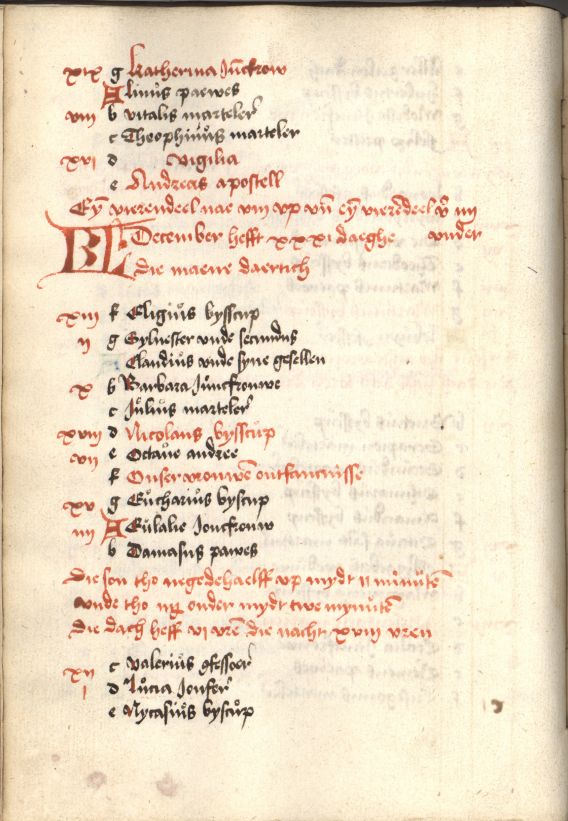 xix g Katherina Ju̅cfrow
A Linus paewes
viii b vitalis marteler
c Theophinus marteler
xvi d Vigilia
e Andreas apostell
Ey̅ vierendeel nae viii vp vn̅ ey̅ viere̅deel v̅ iiii
KL December hefft xxxi daeghe vnder
die maene daertich
xiii f Eligius bysscup
ii g Syluester vnde secundus
A Claudius vnde syne gesellen
x b Barbara Juncfrouwe
c Julius marteler
xviii d Nicolaus bysscup
vii e Octaue andree
f Onser vrouwe̅ ontfancnisse
xv g Eucharius byscup
iiii A Eulalie Joncfrouw
b Damasus pawes
Die son tho negedehaelff vp mydt ii minute̅
vnde tho onder mydt twe mynute̅
Die dach heff vi vre̅ die nacht xviii vren
xii c valerius ↄfessoer
i d Lucia Jonfer
e Nycasius byscup